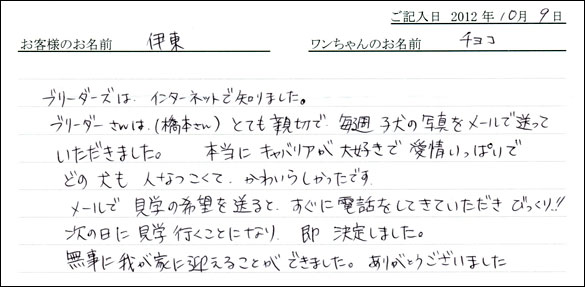 ご記入日 2012年10月9日
お客様のお名前 伊東 ワンちゃんのお名前 チョコ
ブリーダーズは、インターネットで知りました。
ブリーダーさんは、(橋本さん)とても親切で、毎週子犬の写真をメールで送って
いただきました。 本当にキャバリアが大好きで愛情いっぱいで
どの犬も人なつこくて、かわいらしかったです
メールで見学の希望を送ると、すぐに電話をしてきていただきびっくり!!
次の日に見学行くことになり、即決定しました。
無事に我が家に迎えることができました。ありがとうございました